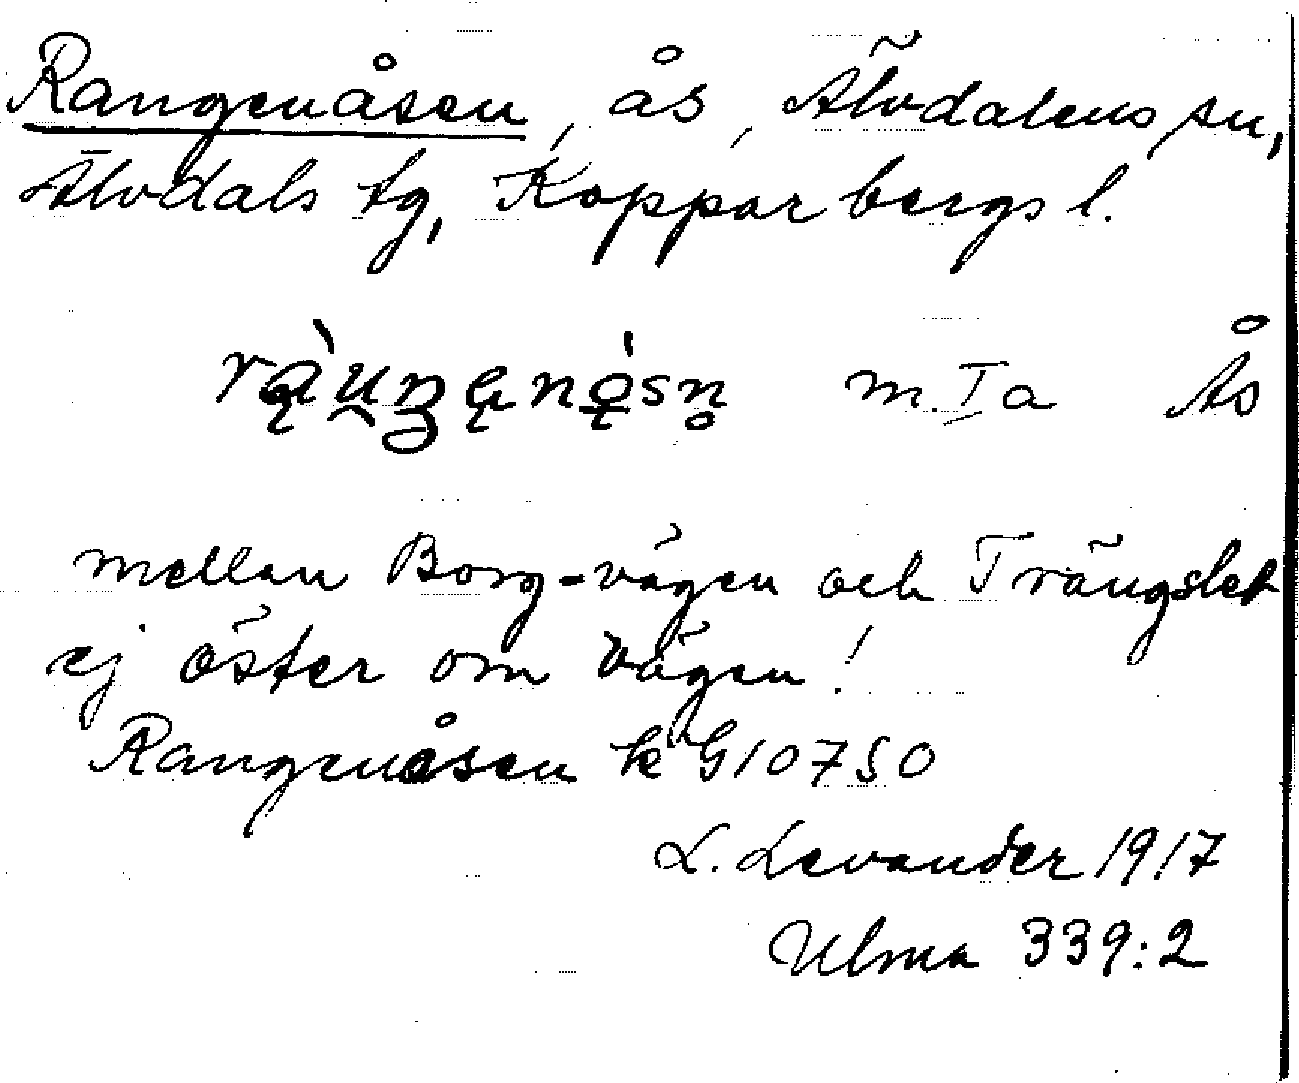 Rangenåsen, ås, Älvdalens sn,
Älvdals tg, Kopparbergs l.
rą̀u̯ŋęnǫ́sn̥ m. I a Ås
mellan Borg-vägen och Trängslet
ej öster om vägen!
Rangenåsen k G10750
L. Levander 1917
Ulma 339:2